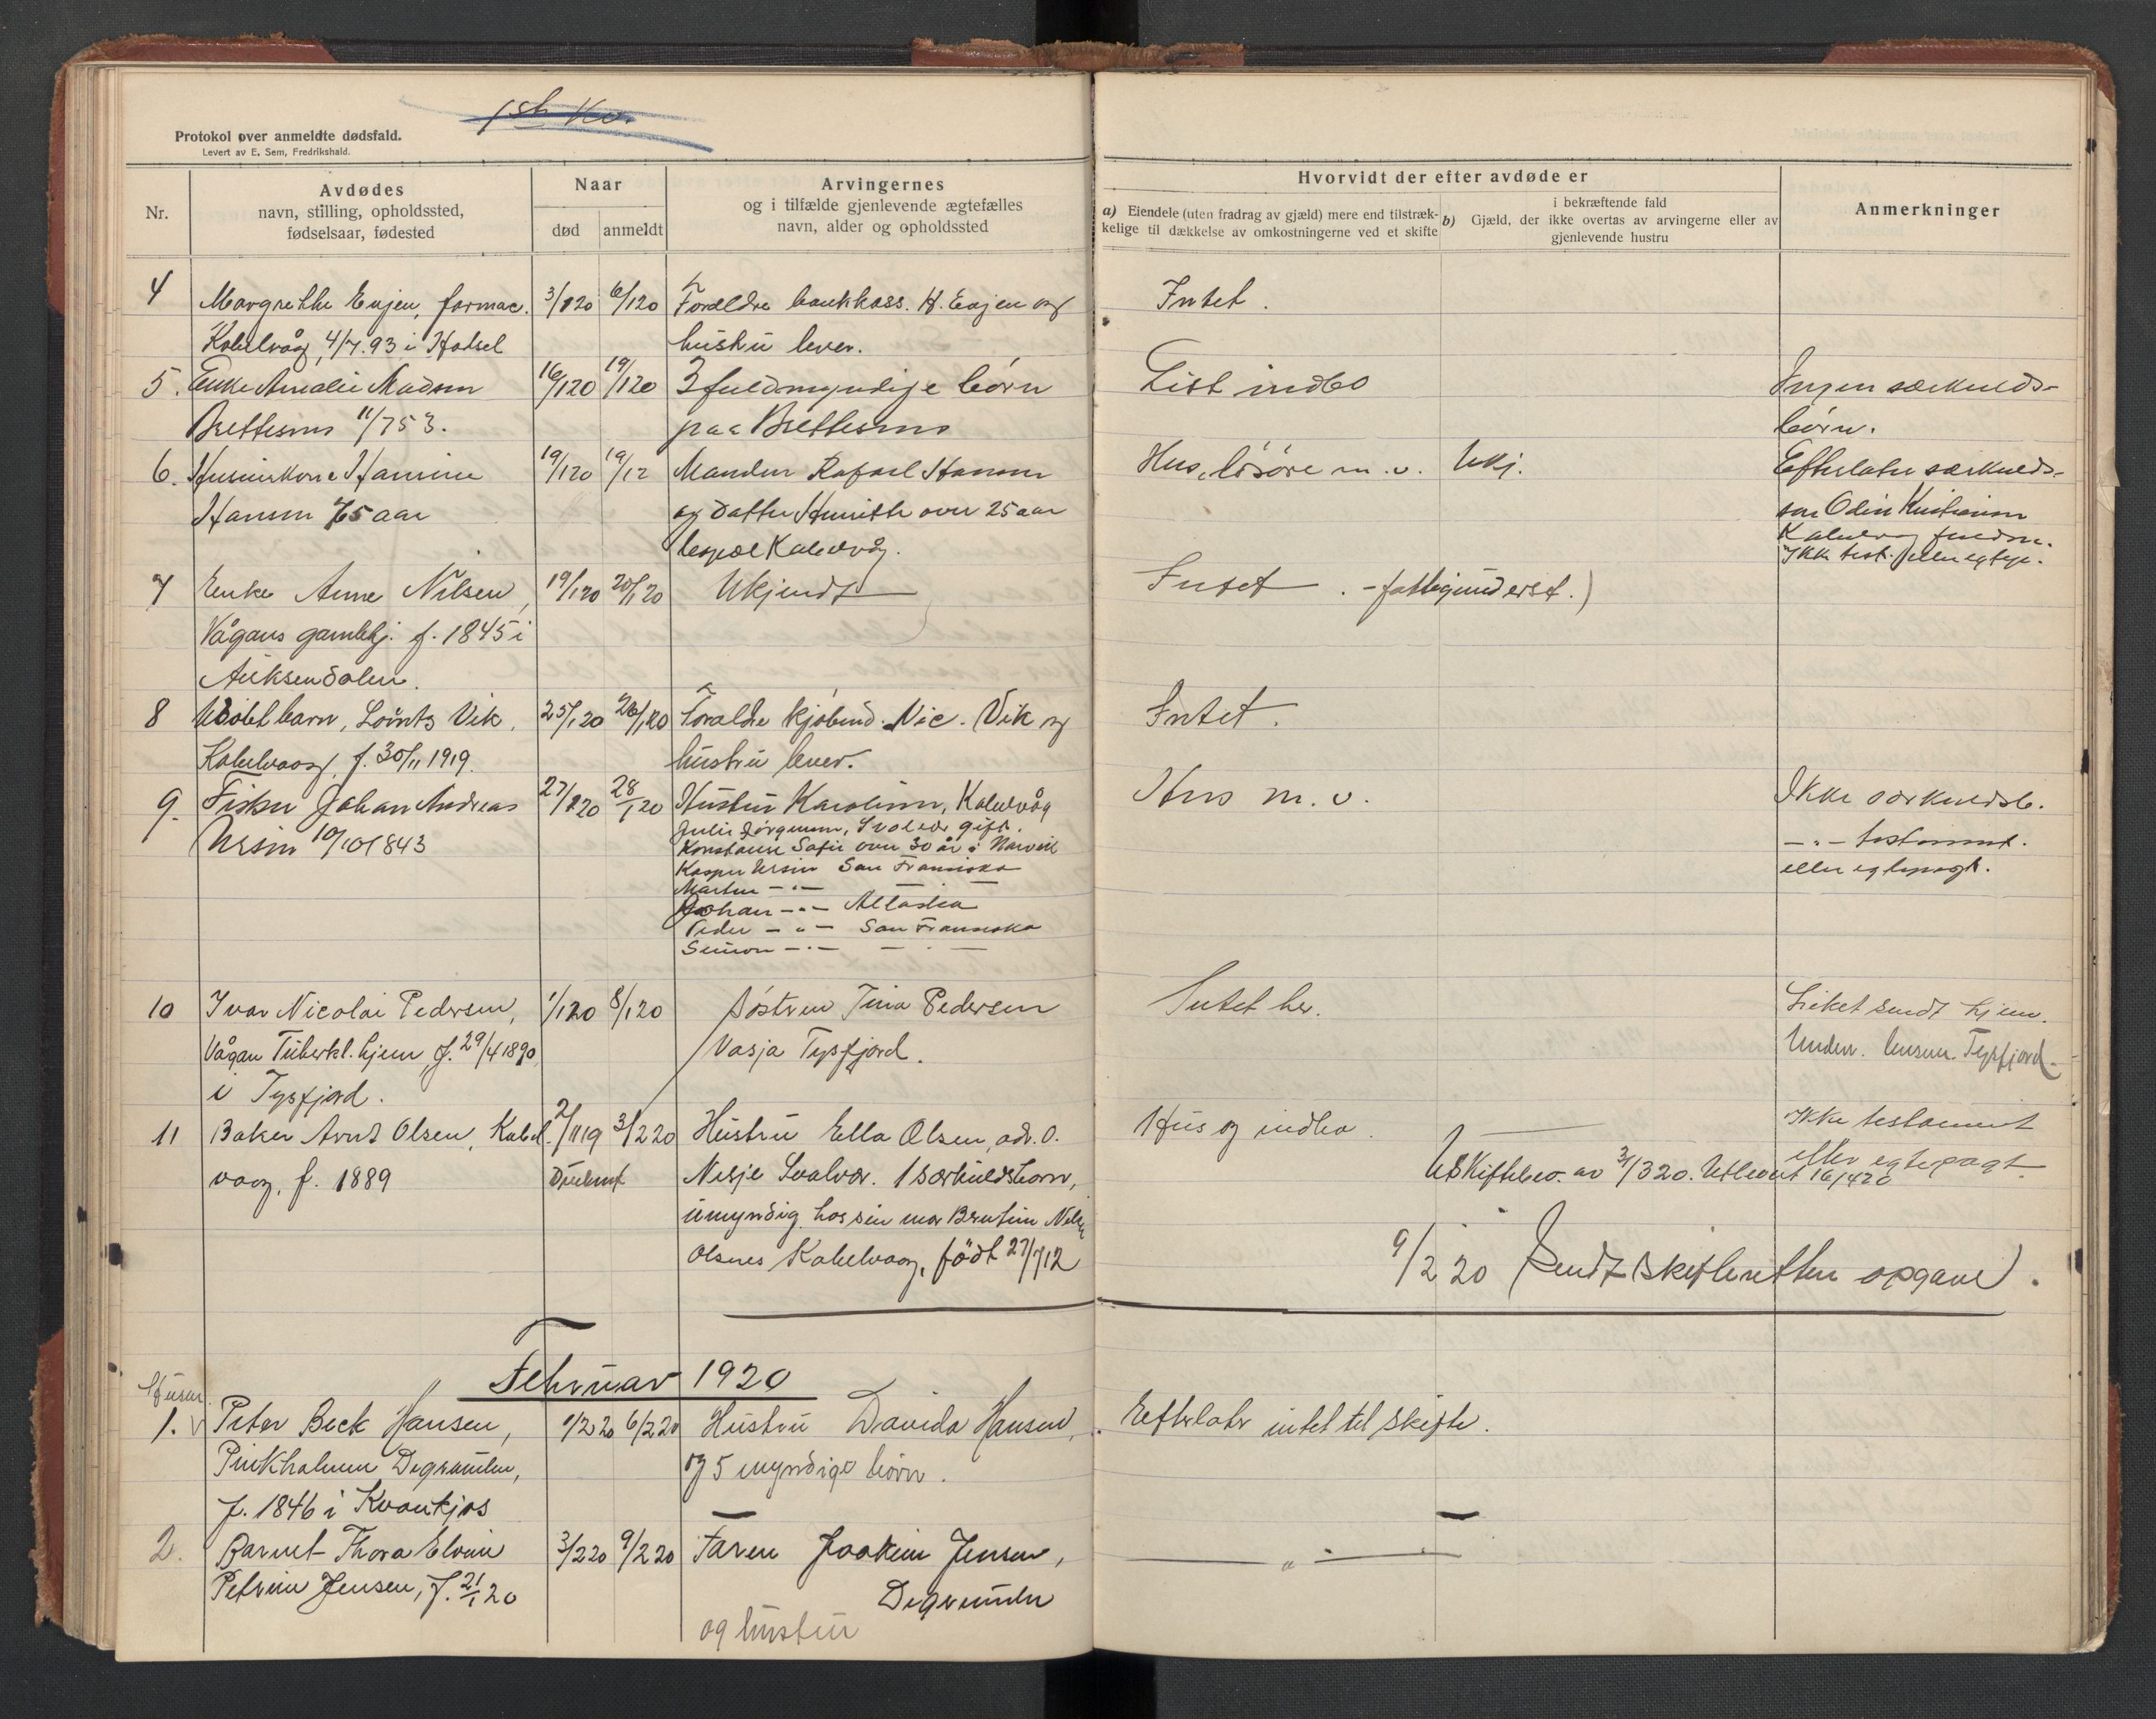 1ste Kv.
Protokol over anmeldte dødsfald.
Levert av E. Sem, Fredrikshald.
Nr.
Avdødes
navn, stilling, opholdssted,
fødselsaar, fødested
Naar
død
anmeldt
Arvingernes
og i tilfælde gjenlevende ægtefælles
navn, alder og opholdssted
Hvorvidt der efter avdøde er
a) Eiendele (uten fradrag av gjæld) mere end tilstræk-
kelige til dækkelse av omkostningerne ved et skifte
i bekræftende fald
b) Gjæld, der ikke overtas av arvingerne eller av
gjenlevende hustru
Anmerkninger
4 Margrethe Enjen, farmac. 3/1 20 6/1 20 Forældre bankkass. H. Enjen og Intet.
Kabelvåg, 4/7.93 i Hadsel hustru lever.
5. Enke Amalie Madsen 16/1 20 19/1 20 3 fuldmyndige børn Litt indbo Ingen særkulds-
Brettesnes 11/7 53. paa Brettesnes børn.
6. Husmorkone Hansine 19/1 20 19/12 Manden Rafael Hansen Hus, løsøre m.v. Ukj. Efterlater særkulds-
Hansen 75 aar og datter Henriette over 25 aar søn Odin Kristiansen
begge Kabelvåg. Kabelvåg fuldm.
Ikke test. eller egtep.
7 Enke Anne Nilsen, 19/1 20 20/1 20 Ukjendt Intet. - fattigunderst.)
Vågans gamlehj. f. 1845 i
8 Udøbt barn, Lornts Vik, 25/1 20 26/1 20 Foraldre kjøbmd. Nic. Vik og Intet.
Kabelvaag, f. 30/11 1919. hustru lever.
9. Fisker Johan Andreas 27/1 20 28/1 20 Hustru Karoline, Kabelvåg Hus m.v. Ikke særkuldsb.
Ursin 10/10 1843 Julie Jørgensen, Svolvær gift. -"- testament.
Konstanse Sofie over 30 år i Narvik eller egtepagt.
Kasper Ursin San Fransisko
Martin -"- -
Johan -"- Altaska
Peder -"- San Fransisko
Simon -"- - " -
10 Ivar Nicolai Pedersen, 1/1 20 8/1 20 Søstren Tina Pedersen Intet her. Liket sendt hjem.
Vågan Tuberkl. hjem, f. 29/4 1890, Vasja Tysfjord. Underr. lensm. Tysfjord.
i Tysfjord.
11 Baker Arnt Olsen, Kabel- 2/11 19 3/2 20 Hustru Ella Olsen, adr. O. Hus og indbo. Ikke testament
vaag, f. 1889 Druknet Nesje Svolvær. 1 særkuldsbarn, eller egtepagt
Uskiftebev. av 3/3 20. Utlevert 16/4 20
umyndig hos sin mor Bentine
Olsnes Kabelvaag, født 27/7 12 9/2 20 Sendt skifteretten opgave.
Februar 1920
1. Peter Beck Hansen, 1/2 20 6/2 20 Hustru Davida Hansen, Efterlater intet til skifte.
Digermulen, og 5 myndige børn.
f. 1846 i Kvænkjos
2. Barnet Thora Elvine 3/2 20 9/2 20 Faren Joakim Jensen, - " -
Petrine Jensen, f. 21/1 20 Digermulen
og hustru